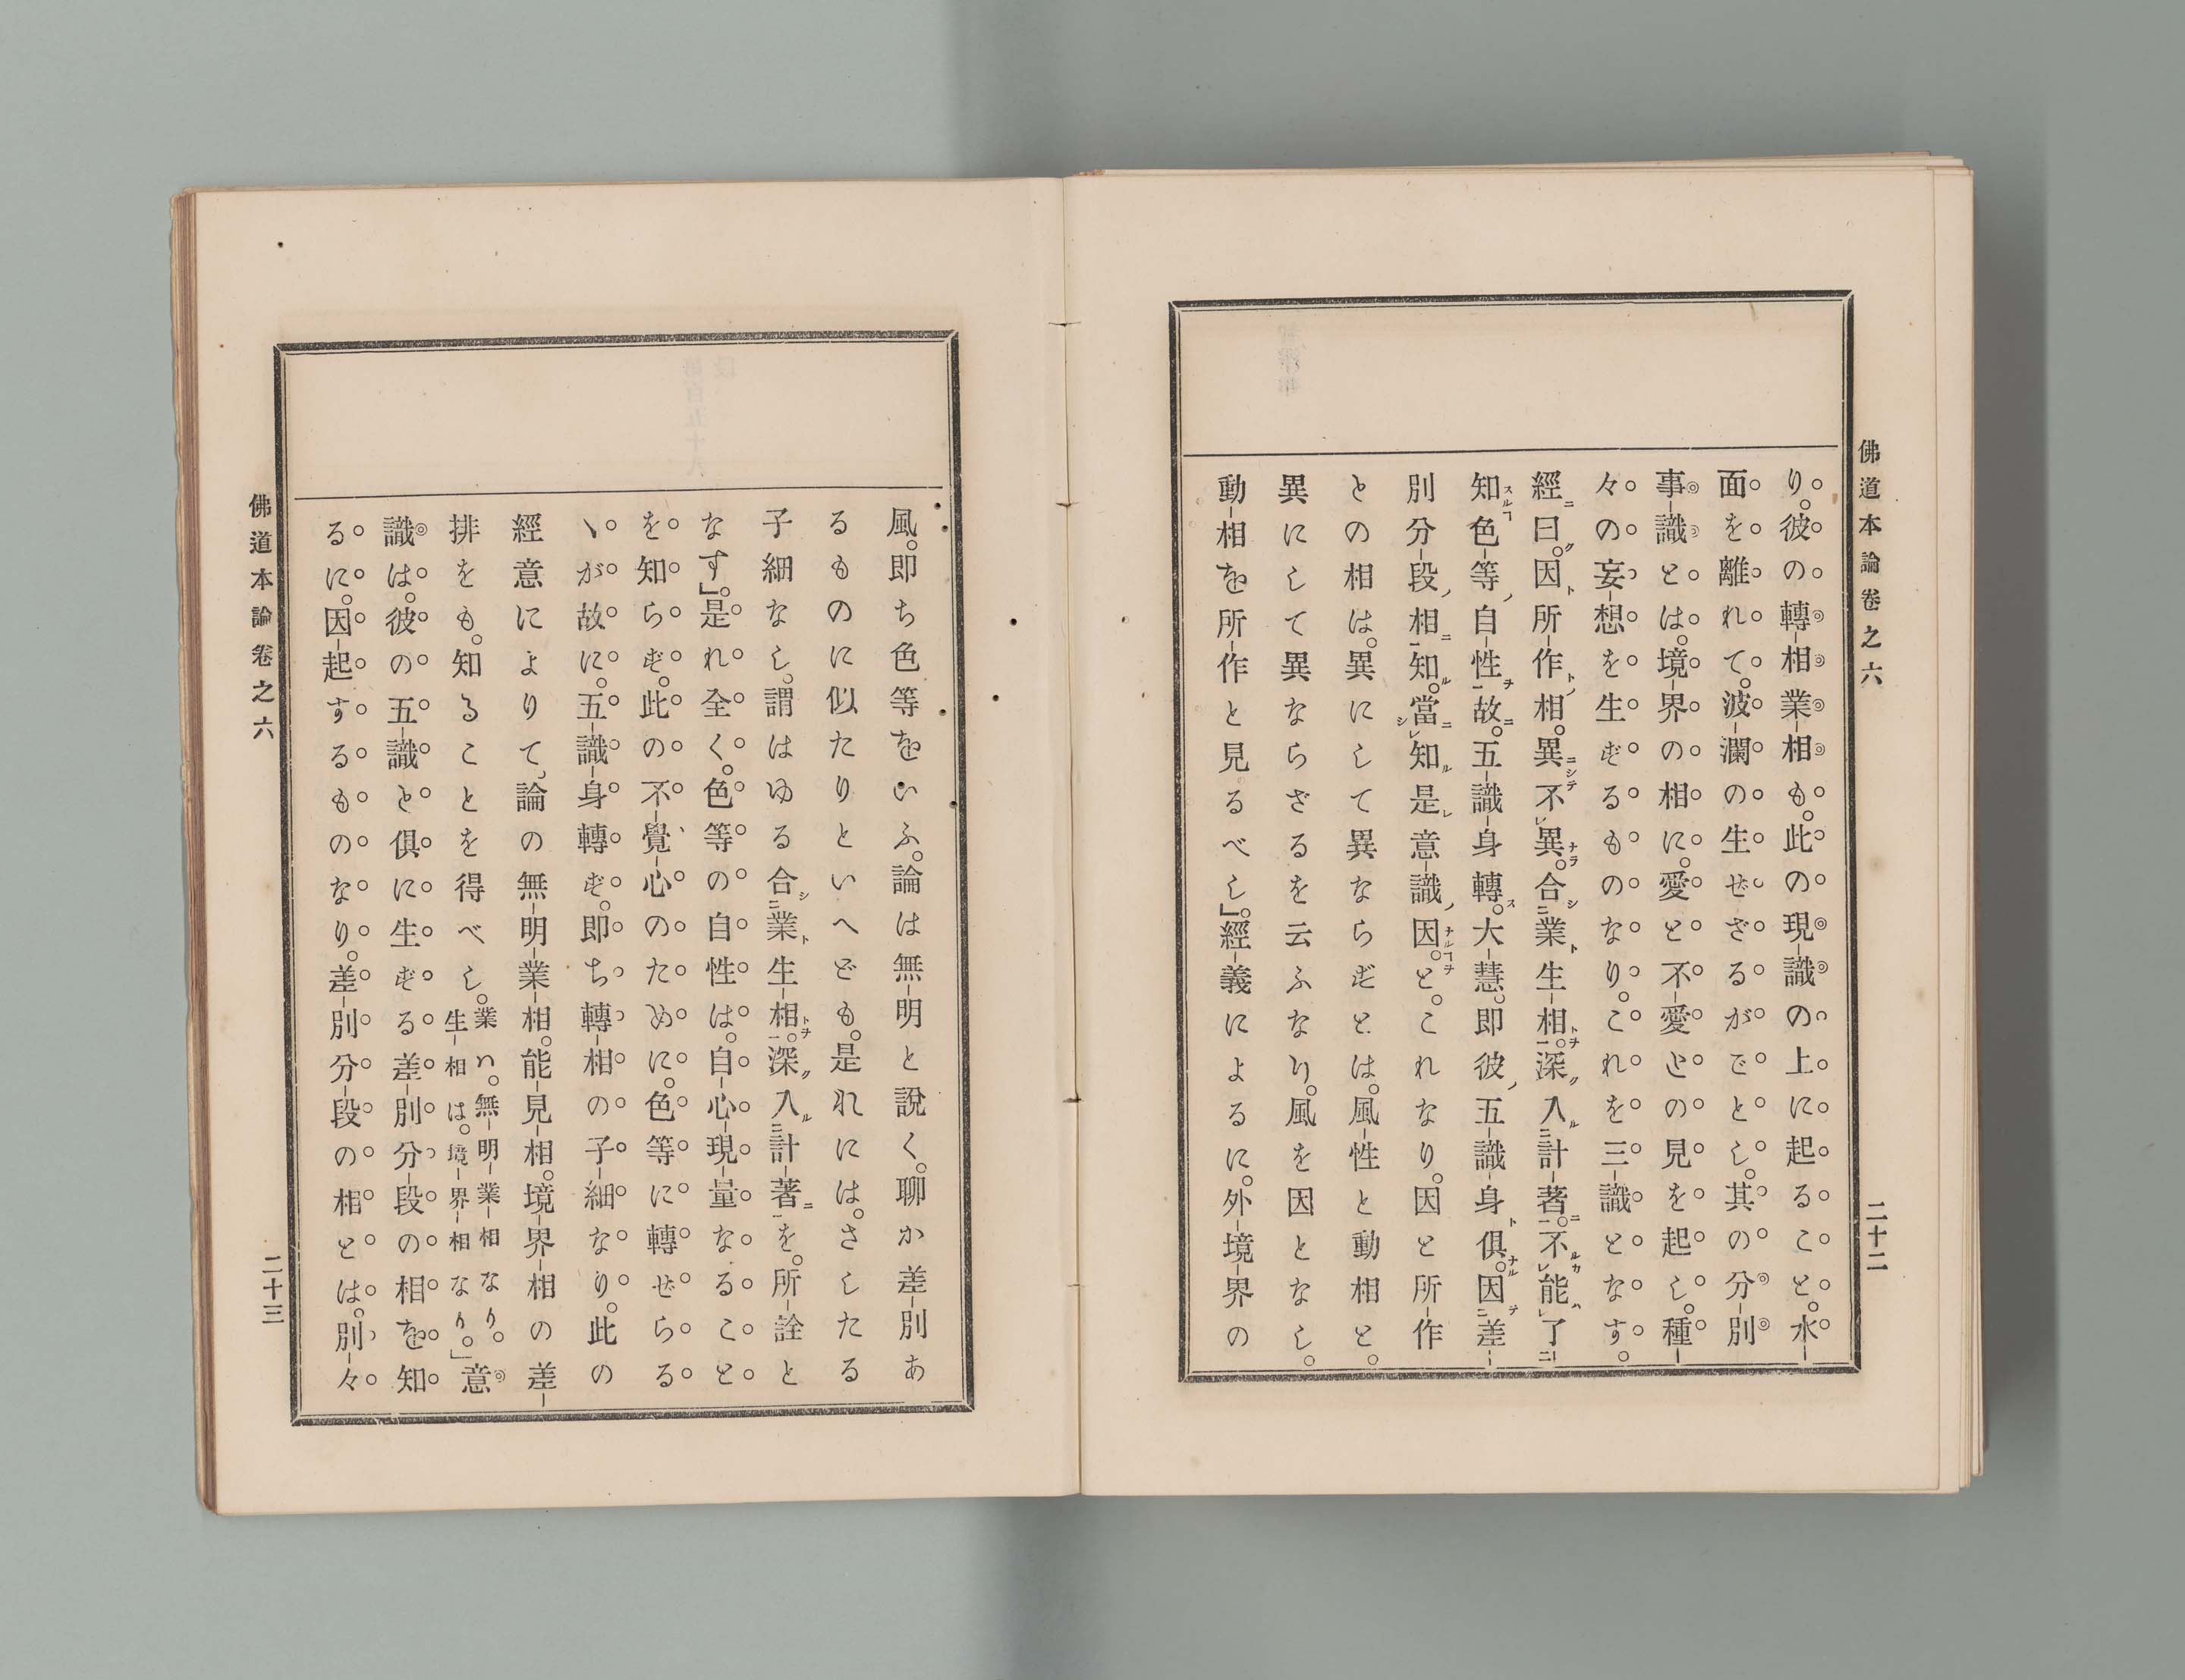 佛道本論卷之六
二十二
り。彼の轉相業相も。此の現識の上に起ること。水
面を離れて。波瀾の生せざるがごとし。其の分別
事識とは。境界の相に。愛と不愛との見を起し。種
々の妄想を生ずるものなり。これを三識となす。
經ニ曰ク。因ト所作ト相ノ。異ニシテ不レ異ナラ。合シニ業ト生相トヲ一。深ク入ルニ計著ニ一。不レ能ハルカレ了ニ
知スルコト色等ノ自性ヲ一故ニ。五識身轉ス。大慧。即彼ノ五識身ト俱ナル。因ヲニ差
別分段ノ相ニ一知ル。當ニシレ知ル是レ意識ノ因ナルコトヲ。と。これなり。因と所作
との相は。異にして異ならずとは。風性と動相と。
異にして異ならざるを云ふなり。風を因となし。
動相を所作と見るべし」。經義によるに。外境界の
風。即ち色等をいふ。論は無明と說く。聊か差別あ
るものに似たりといへども。是れには。さしたる
子細なし。謂はゆる合シニ業ト生相トヲ一。深ク入ルニ計著ニ一を。所詮と
なす」。是れ全く。色等の自性は。自心現量なること
を知らず。此の不覺心のために。色等に轉せらる
ゝが故に。五識身轉ず。即ち轉相の子細なり。此の
經意によりて、論の無明業相。能見相。境界相の差
排をも。知ることを得べし。業ハ。無明業相なり。生相は。境界相なり。」意
識は。彼の五識と俱に生ずる差別分段の相を知
るに。因起するものなり。差別分段の相とは。別々
佛道本論卷之六
二十三